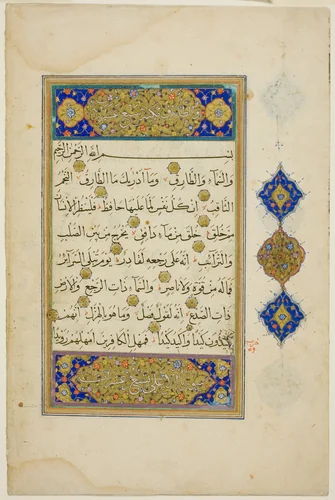 بسم الله الرحمن الرحيم
والسماء والطارق وما ادريك ما الطارق النجم
الثاقب ان كل نفس لما عليها حافظ فلينظر الانسان
مم خلق خلق من ماء دافق يخرج من بين الصلب
والترائب انه على رجعه لقادر يوم تبلى السرائر
فماله من قوة ولا ناصر والسماء ذات الرجع والارض
ذات الصدع انه لقول فصل وما هو بالهزل انهم
يكيدون كيدا واكيد كيدا فمهل الكافرين امهلهم رويدا
الاعلى تسع عشرة